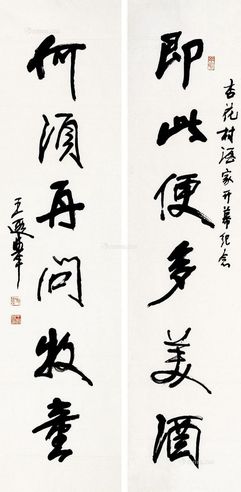 杏花村酒家开幕纪念
即此便多美酒
何须再问牧童
王遐举